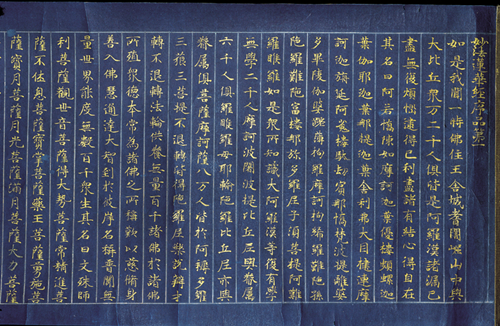 妙法蓮華經序品第一
如是我聞一時佛住王舍城耆闍崛山中與
大比丘眾万二千人俱皆是阿羅漢諸漏已
盡無復煩惱逮得己利盡諸有結心得自在
其名曰阿若憍陳如摩訶迦葉優樓頻螺迦
葉伽耶迦葉那提迦葉舍利弗大目揵連摩
訶迦旃延阿㝹樓馱劫賓那憍梵波提離婆
多畢陵伽婆蹉薄拘羅摩訶拘絺羅難陀孫
陀羅難陀富樓那彌多羅尼子須菩提阿難
羅睺羅如是眾所知識大阿羅漢等復有學
無學二千人摩訶波闍波提比丘尼與眷屬
六千人俱羅睺羅母耶輸陀羅比丘尼亦與
眷屬俱菩薩摩訶薩八万人皆於阿耨多羅
三藐三菩提不退轉皆得陀羅尼樂說辯才
轉不退轉法輪供養無量百千諸佛於諸佛
所殖眾德本常為諸佛之所稱歎以慈脩身
善入佛慧通達大智到於彼岸名稱普聞無
量世界能度無數百千眾生其名曰文殊師
利菩薩觀世音菩薩得大勢菩薩常精進菩
薩不休息菩薩寶掌菩薩藥王菩薩勇施菩
薩寶月菩薩月光菩薩滿月菩薩大力菩薩